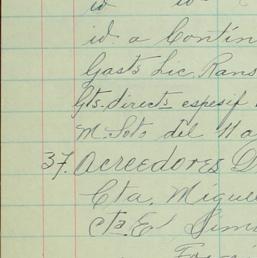 id id
id. a Contin
Gasts Lic. Rans
Gts. directs espesif
M. Soto del Ha
37. Acreedores D
Cta. Migue
Cta. E Sim